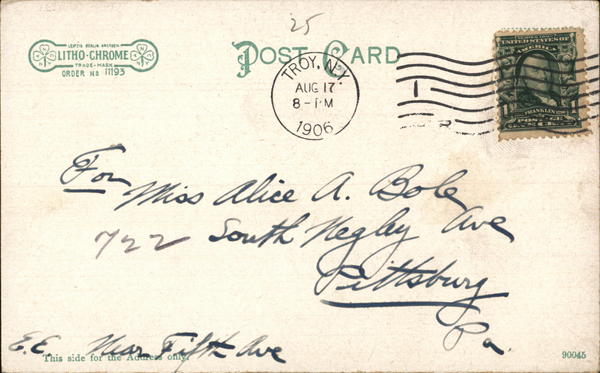 25
LEIPZIG BERLIN DRESDEN
LITHO-CHROME
TRADE-MARK
ORDER No 11193
POST CARD
TROY, N.Y.
AUG 17
8-PM
1906
1
UNITED STATES OF
AMERICA
FRANKLIN
POSTAGE
For Miss Alice A. Bole
722 South Negley Ave
Pittsburg
Pa.
E.E. Near Fifth Ave
This side for the Address only.
90045